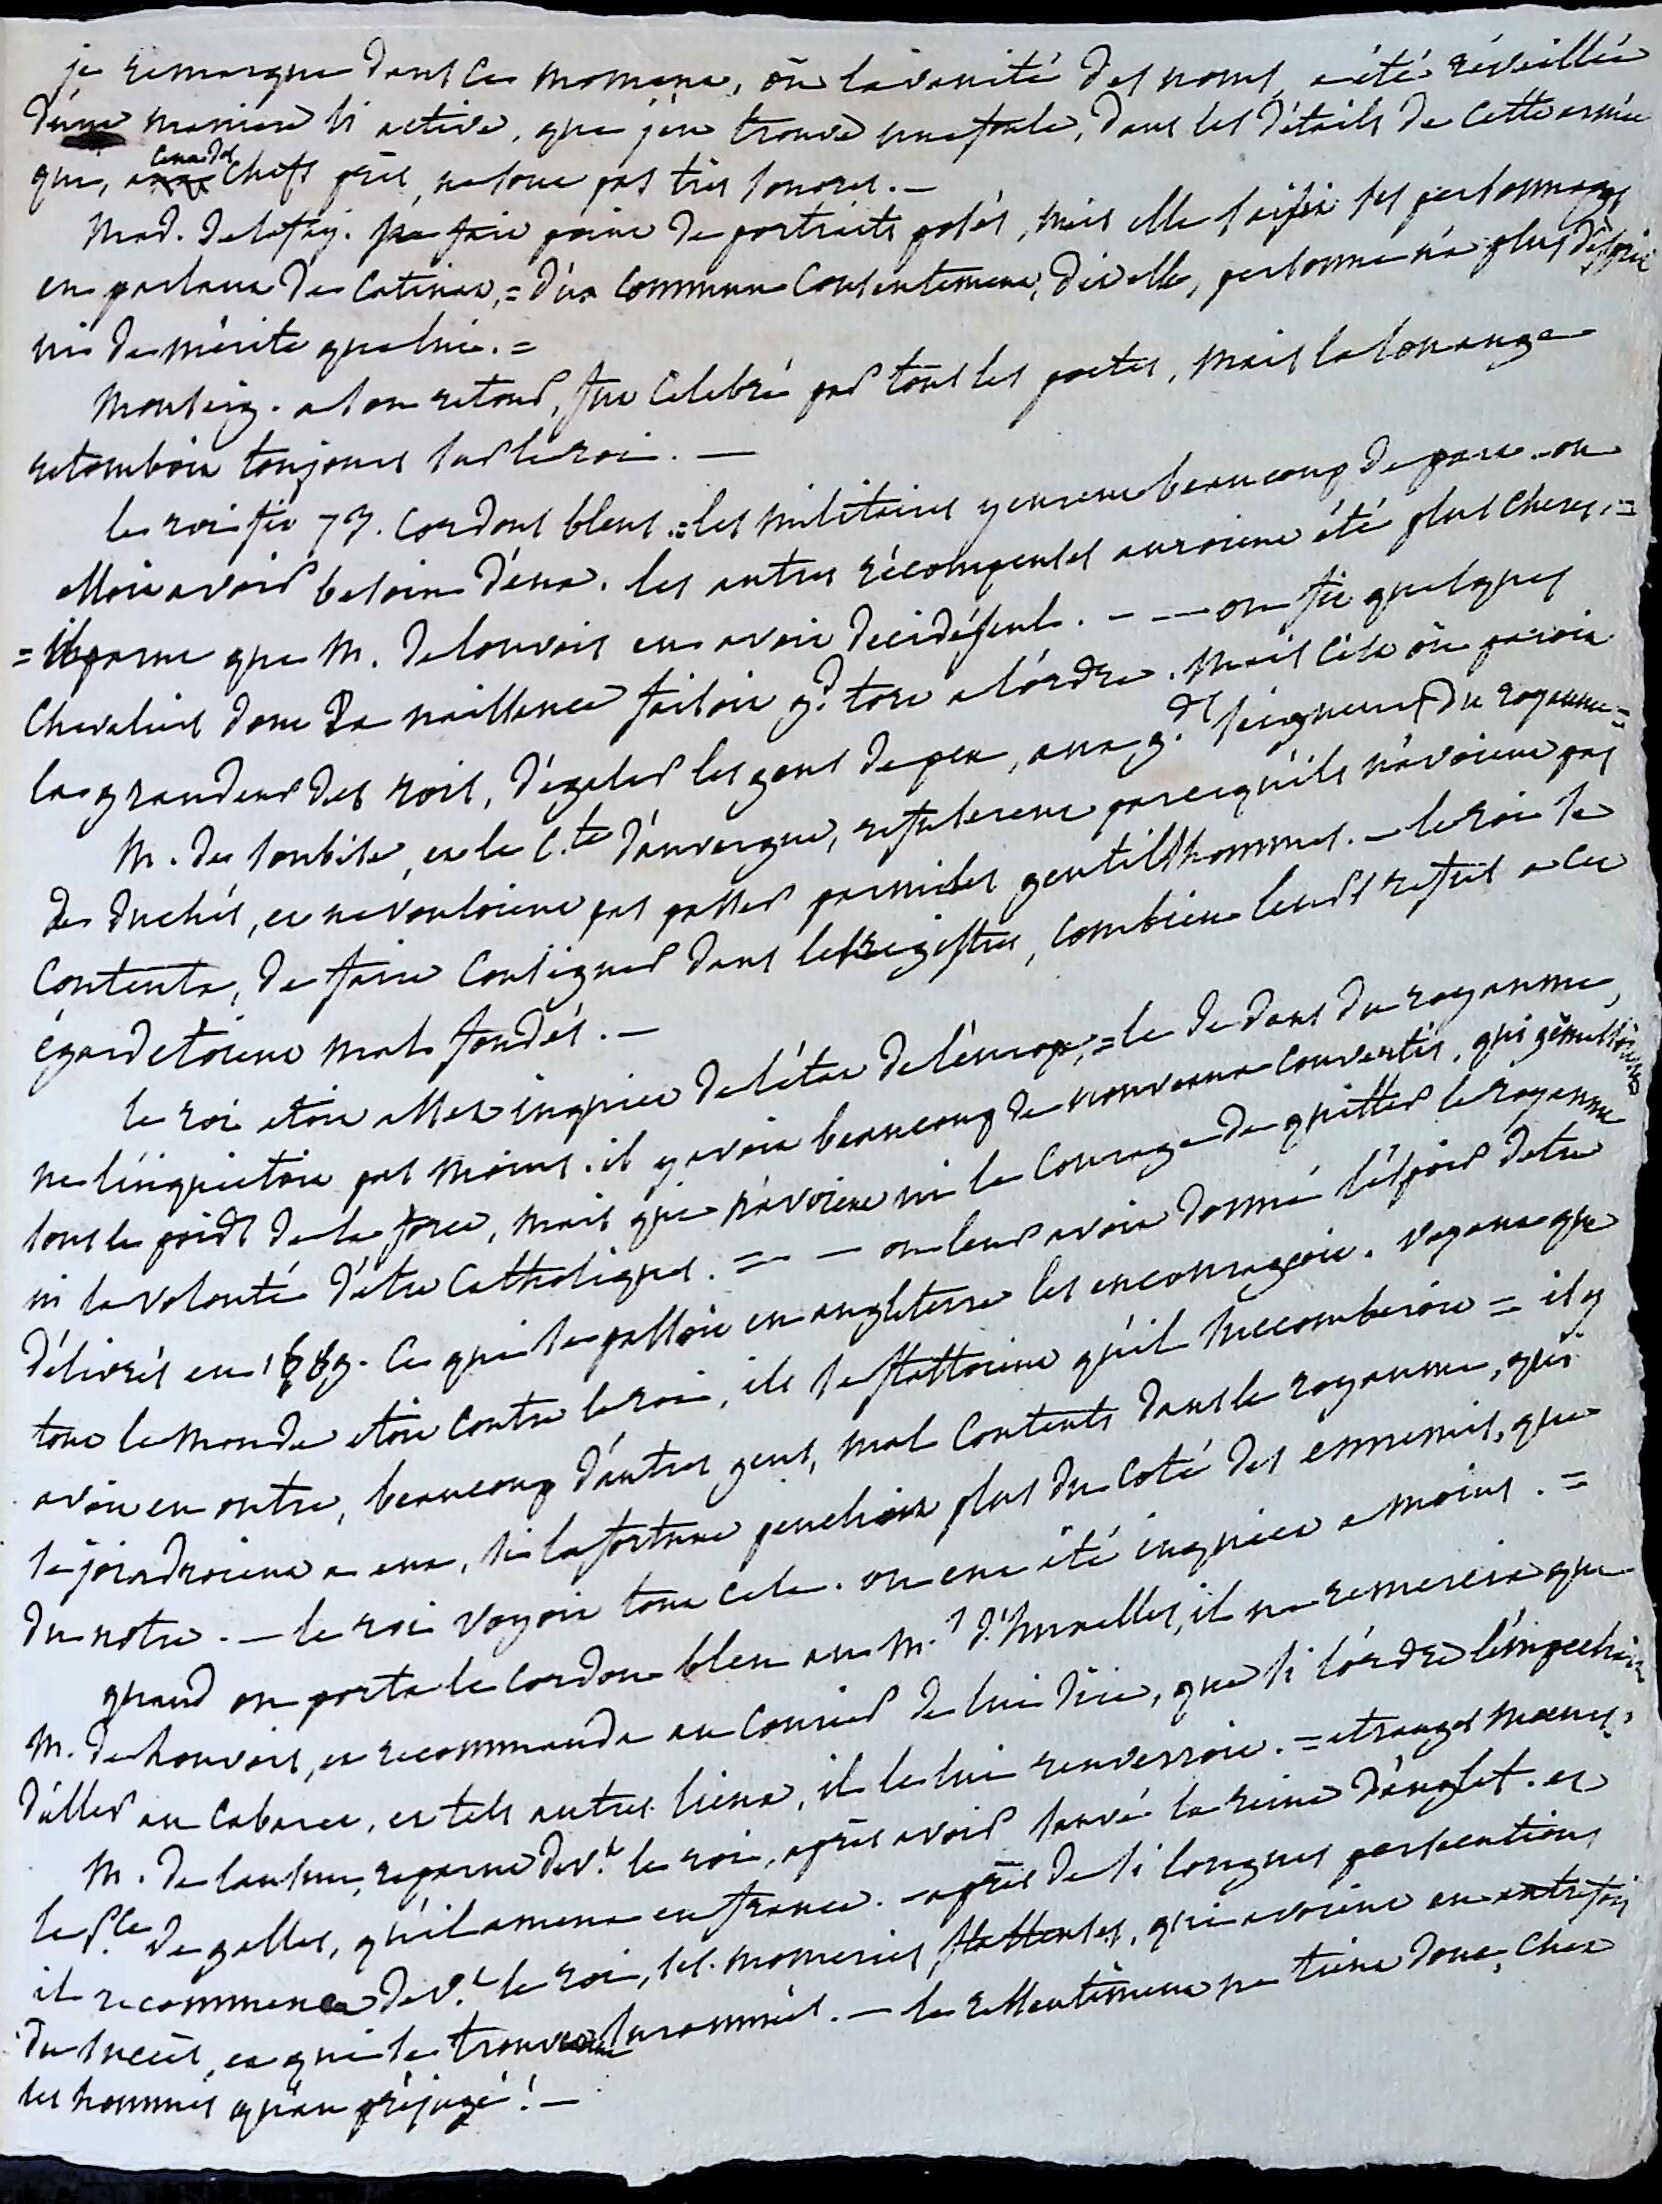 je remarque dans ce moment, où la vanité des noms, a été réveillée
d'une maniere si active, que j'en trouve une foule, dans les détails de cette armée
que, ceux des chefs près, ne sont pas très sonores. —
Mad. de lafay. ne fait point de portraits posés, mais elle saisit ses personnages
en parlant de Catinat, = d'un commun consentement, dit elle, personne n'a plus d'esprit
ni de mérite que lui. =
Monseig. a son retour, fut célébré par tous les poetes, mais la louange
retomboit toujours sur le roi. —
le roi fit 73. cordons bleus. = les militaires y eurent beaucoup de part. on
alloit avoir besoin d'eux. les autres récompenses auroient été plus cheres. =
= il parut que M. de louvois en avoit décidé seul. — — on fit quelques
chevaliers dont la naissance faisoit gd. tort a l'ordre. mais c'est où paroit
la grandeur des rois, d'égaler les gens de peu, aux gds. seigneurs du royaume =
M. de soubise, et le Cte. d'auvergne, refuserent parcequ'ils n'avoient pas
de duchés, et ne vouloient pas passer parmi les gentilshommes. — le roi se
contenta, de faire consigner dans les registres, combien leurs refus a cet
égard etoient mal fondés. —
le roi etoit assez inquiet de l'état de l'europe, = le dedans du royaume,
ne l'inquietoit pas moins. il y avoit beaucoup de nouveaux convertis, qui gémissoient
sous le poids de la force, mais qui n'avoient ni le courage de quitter le royaume
ni la volonté d'être catholiques. = — on leur avoit donné l'espoir d'etre
délivrés en 1689. ce qui se passoit en angleterre les encourageoit. voyant que
tout le monde etoit contre le roi, ils se flattoient qu'il succomberoit = il y
avoit en outre, beaucoup d'autres gens, mal contents dans le royaume, qui
se joindroient a eux, si la fortune penchoit plus du coté des ennemis, que
du notre. — le roi voyoit tout cela. on eut été inquiet a moins. =
quand on porta le cordon bleu au M.s d'huxelles, il ne remercia que
M. de Louvois, et recommanda au courier de lui dire, que si l'ordre l'empechoit
d'aller au cabaret, et tels autres lieux, il le lui renverroit. = etranges mœurs.
M. de lausun, reparut dev.t le roi, après avoir sauvé la reine d'anglet. et
le Pce. de galles, qu'il amena en france. — après de si longues persécutions
il recommença dev.t le roi, ses momeries flatteuses, qui avoient eu autrefois
du succès, et qui se trouverent surannées. — le ressentiment ne tient donc, chez
les hommes qu'au préjugé! —